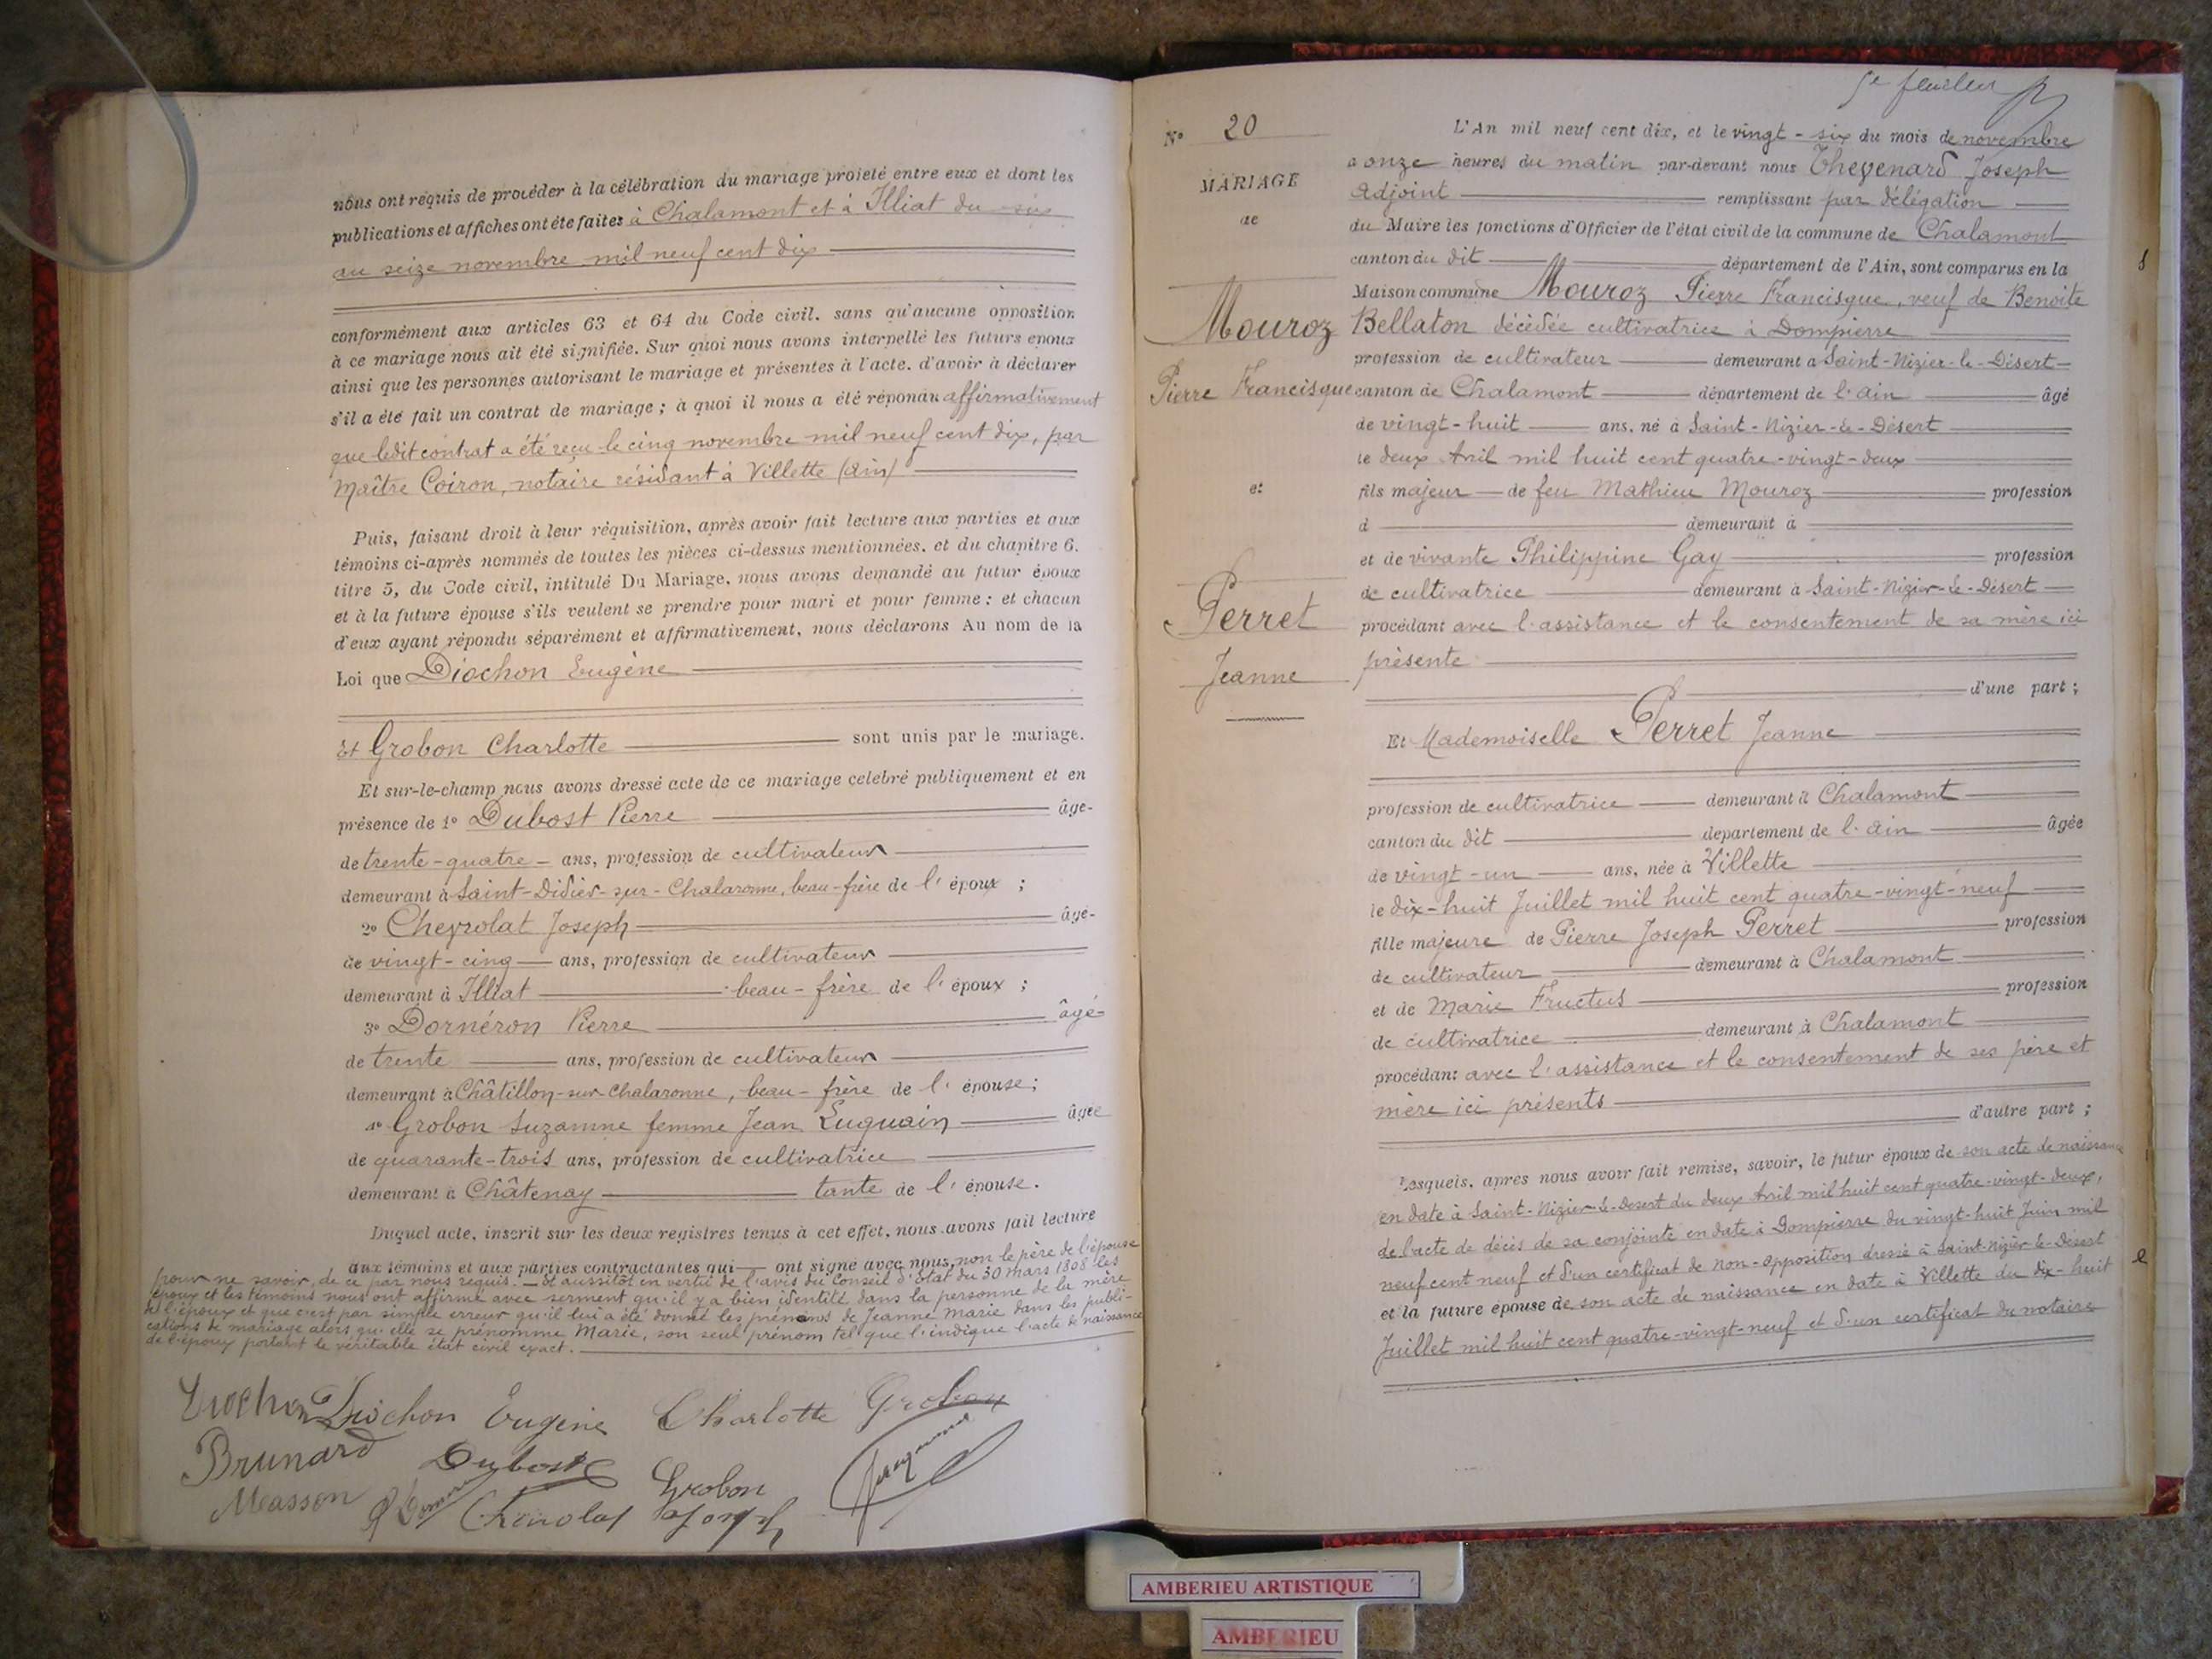 nous ont requis de procéder à la célébration du mariage projeté entre eux et dont les
publications et affiches ont été faites à Chalamont et à Illiat du six
au seize novembre mil neuf cent dix
conformément aux articles 63 et 64 du Code civil. sans qu'aucune opposition
à ce mariage nous ait été signifiée. Sur quoi nous avons interpellé les futurs epoux
ainsi que les personnes autorisant le mariage et présentes à l'acte. d'avoir à déclarer
s'il a été fait un contrat de mariage ; à quoi il nous a été répondu affirmativement
que ledit contrat a été reçu le cinq novembre mil neuf cent dix, par
Maître Coiron, notaire résidant à Villette (Ain)
Puis, faisant droit à leur réquisition, après avoir fait lecture aux parties et aux
témoins ci-après nommés de toutes les pièces ci-dessus mentionnées. et du chapitre 6.
titre 5, du Code civil, intitulé Du Mariage, nous avons demandé au futur époux
et à la future épouse s'ils veulent se prendre pour mari et pour femme : et chacun
d'eux ayant répondu séparément et affirmativement, nous déclarons Au nom de la
Loi que Diochon Eugène
Et Grobon Charlotte sont unis par le mariage.
Et sur-le-champ nous avons dressé acte de ce mariage celebré publiquement et en
présence de 1º Dubost Pierre âgé
de trente-quatre ans, profession de cultivateur
demeurant à Saint-Didier-sur-Chalaronne, beau-frère de l'époux ;
2º Cheyrolat Joseph âgé
de vingt-cinq ans, profession de cultivateur
demeurant à Illiat beau-frère de l'époux ;
3º Dornéron Pierre âgé
de trente ans, profession de cultivateur
demeurant à Châtillon-sur-Chalaronne, beau-frère de l'épouse ;
4º Grobon Suzanne femme Jean Luguain âgée
de quarante-trois ans, profession de cultivatrice
demeurant à Châtenay tante de l'épouse.
Duquel acte, inscrit sur les deux registres tenus à cet effet, nous avons fait lecture
aux témoins et aux parties contractantes qui ont signé avec nous, non le père de l'épouse
pour ne savoir, de ce par nous requis. Et aussitôt en vertu de l'avis du Conseil d'Etat du 30 mars 1808 les
époux et les témoins nous ont affirmé avec serment qu'il y a bien identité dans la personne de la mère
de l'époux et que c'est par simple erreur qu'il lui a été donné les prénoms de Jeanne Marie dans les publi-
cations de mariage alors qu'elle se prénomme Marie, son seul prénom tel que l'indique l'acte de naissance
de l'époux portant le véritable état civil exact.
Diochon Diochon Eugène Charlotte Grobon
Brunard Dubost Grobon
Masson Joseph
5e feuillet
Nº 20
MARIAGE
de
Mouroz
Pierre Francisque
et
Perret
Jeanne
L'An mil neuf cent dix, et le vingt-six du mois de novembre
à onze heures du matin par-devant nous Thévenard Joseph
Adjoint remplissant par délégation
du Maire les fonctions d'Officier de l'état civil de la commune de Chalamont
canton du dit département de l'Ain, sont comparus en la
Maison commune Mouroz Pierre Francisque, veuf de Benoite
Bellaton décédée cultivatrice à Dompierre
profession de cultivateur demeurant à Saint-Nizier-le-Désert
canton de Chalamont département de l'Ain âgé
de vingt-huit ans, né à Saint-Nizier-le-Désert
le deux Avril mil huit cent quatre-vingt-deux
fils majeur de feu Mathieu Mouroz profession
d demeurant à
et de vivante Philippine Gay profession
de cultivatrice demeurant à Saint-Nizier-le-Désert
procédant avec l'assistance et le consentement de sa mère ici
présente
d'une part ;
Et Mademoiselle Perret Jeanne
profession de cultivatrice demeurant à Chalamont
canton du dit département de l'Ain âgée
de vingt-un ans, née à Villette
le dix-huit Juillet mil huit cent quatre-vingt-neuf
fille majeure de Pierre Joseph Perret profession
de cultivateur demeurant à Chalamont
et de Marie Fructus profession
de cultivatrice demeurant à Chalamont
procédant avec l'assistance et le consentement de ses père et
mère ici présents
d'autre part ;
Lesquels, après nous avoir fait remise, savoir, le futur époux de son acte de naissance
en date à Saint-Nizier-le-Désert du deux Avril mil huit cent quatre-vingt-deux,
de l'acte de décès de sa conjointe en date à Dompierre du vingt-huit Juin mil
neuf cent neuf et d'un certificat de non-opposition dressé à Saint-Nizier-le-Désert
et la future épouse de son acte de naissance en date à Villette du dix-huit
Juillet mil huit cent quatre-vingt-neuf et d'un certificat du notaire
AMBERIEU ARTISTIQUE
AMBERIEU